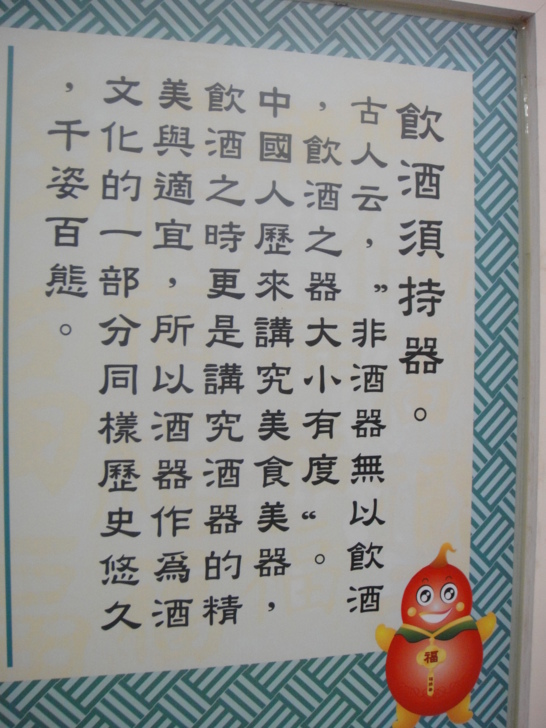 飲酒須持器。
古人云，”非酒器無以飲酒
，飲酒之器大小有度“。
中國人歷來講究美食美器，
飲酒之時更是講究酒器的精
美與適宜，所以酒器作爲酒
文化的一部分同樣歷史悠久
，千姿百態。
福